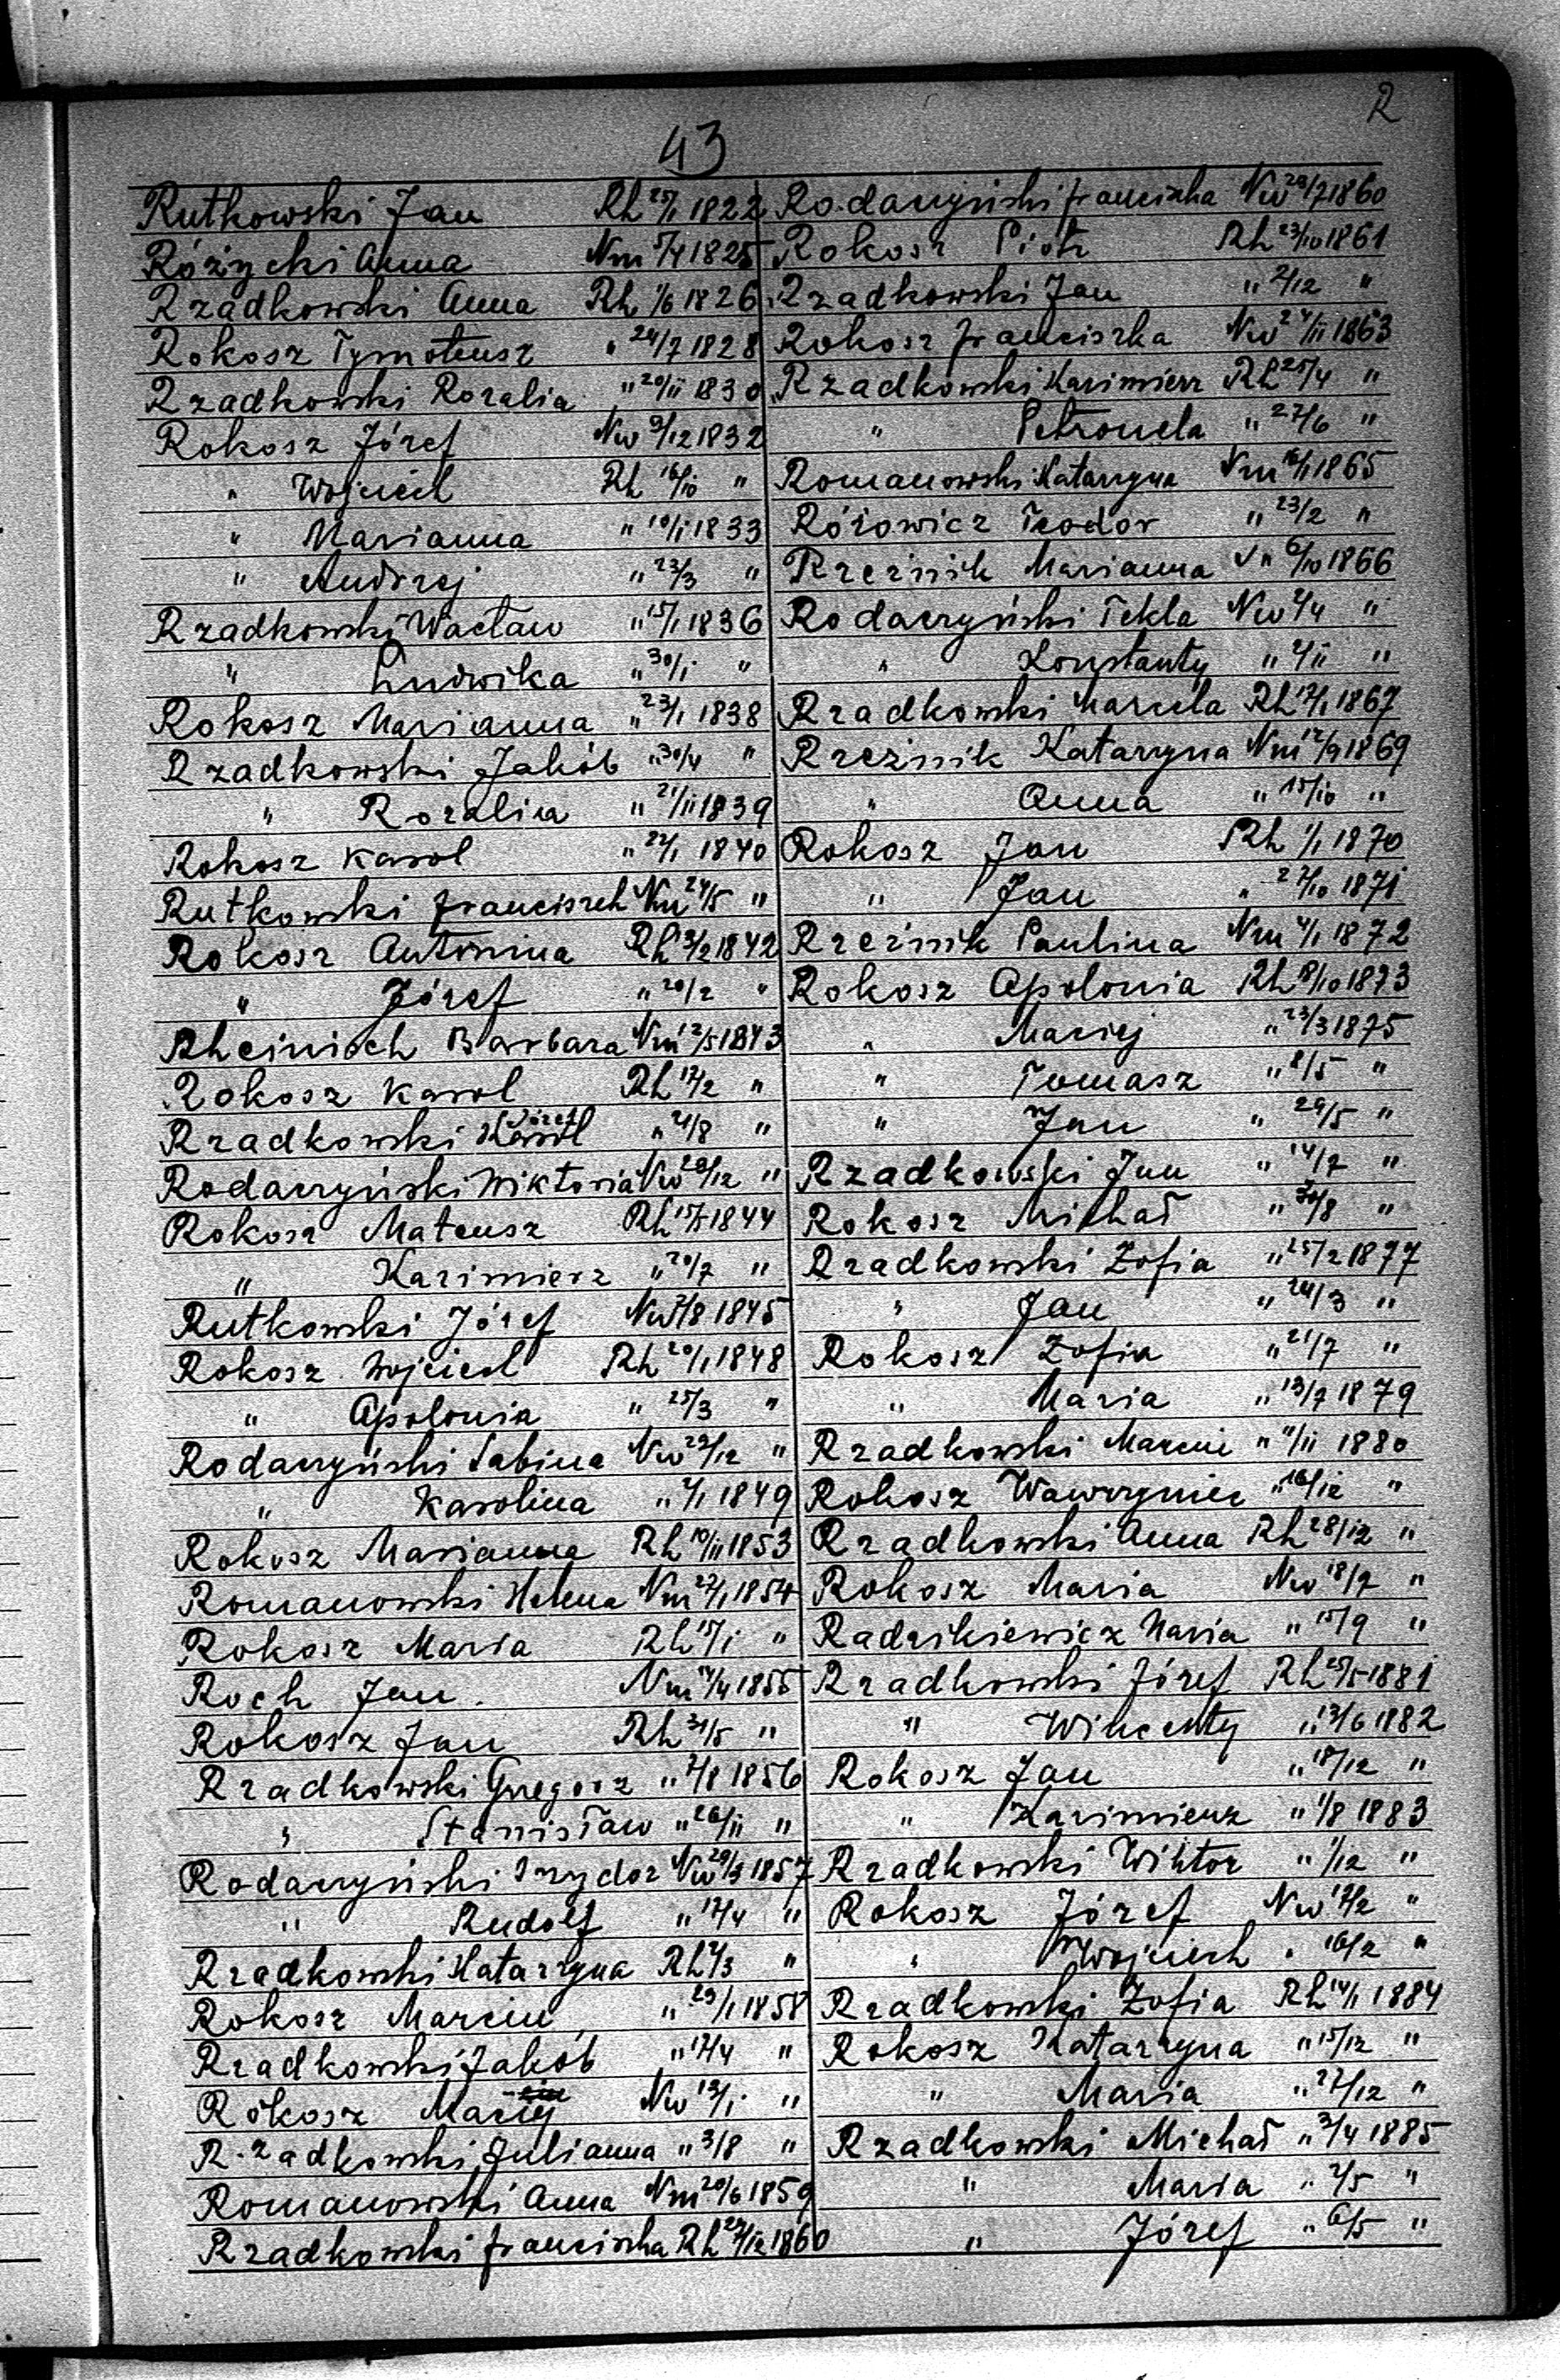 R
43
Rutkowski Jan Rh 25/1 1822
Różycki Anna Nm 5/4 1825
Rzadkowski Anna Rh 1/6 1826
Rokosz Tymoteusz " 24/7 1828
Rzadkowski Rozalia " 20/11 1830
Rokosz Józef Nw 9/12 1832
" Wojciech Rh 16/10 "
" Marianna " 10/1 1833
" Andrzej " 23/3 "
Rzadkowski Wacław " 15/1 1836
" Ludwika " 30/1 "
Rokosz Marianna " 23/1 1838
Rzadkowski Jakób " 30/4 "
" Rozalia " 21/11 1839
Rokosz Karol " 22/1 1840
Rutkowski Franciszek Nm 24/5 "
Rokosz Antonina Rh 13/2 1842
" Józef " 20/2 "
Rheinisch Barbara Nm 12/5 1843
Rokosz Karol Rh 17/2 "
Rzadkowski Józef " 21/8 "
Rodarzyński Wiktoria Nw 20/12 "
Rokosz Mateusz Rh 15/5 1844
" Kazimierz " 20/7 "
Rutkowski Józef Nw 7/8 1845
Rokosz Wojciech Rh 20/1 1848
" Apolonia " 25/3 "
Rodarzyński Sabina Nw 29/12 "
" Karolina " 2/1 1849
Rokosz Marianna Rh 10/11 1853
Romanowski Helena Nm 27/1 1854
Rokosz Maria Rh 15/1 "
Roch Jan Nm 14/4 1855
Rokosz Jan Rh 31/5 "
Rzadkowski Grzegorz " 7/8 1856
" Stanisław " 26/11 "
Rodarzyński Izydor Nw 29/3 1857
" Rudolf " 17/4 "
Rzadkowski Katarzyna Rh 4/3 "
Rokosz Marcin " 29/1 1858
Rzadkowski Jakób " 17/4 "
Rokosz Maciej Nw 13/1 "
Rzadkowski Julianna " 3/8 "
Romanowski Anna Nm 20/6 1859
Rzadkowski Franciszka Rh 27/12 1860
Rodarzyński Franciszka Nw 28/7 1860
Rokosz Piotr Rh 23/10 1861
Rzadkowski Jan " 2/12 "
Rokosz Franciszka Nw 24/11 1863
Rzadkowski Kazimierz Rh 25/4 "
" Petronela " 27/6 "
Romanowski Katarzyna Nm 16/1 1865
Rózowicz Teodor " 23/2 "
Rzeźnik Marianna " 6/10 1866
Rodarzyński Tekla Nw 2/4 "
" Konstanty " 4/11 "
Rzadkowski Marcela Rh 12/1 1867
Rzeźnik Katarzyna Nm 12/9 1869
" Anna " 15/10 "
Rokosz Jan Rh 1/1 1870
" Jan " 27/10 1871
Rzeźnik Paulina Nm 4/1 1872
Rokosz Apolonia Rh 8/10 1873
" Maciej " 23/3 1875
" Tomasz " 8/5 "
" Jan " 29/5 "
Rzadkowski Jan " 14/7 "
Rokosz Michał " 30/8 "
Rzadkowski Zofia " 25/2 1877
" Jan " 24/3 "
Rokosz Zofia " 21/7 "
" Maria " 13/7 1879
Rzadkowski Marcin " 11/11 1880
Rokosz Wawrzyniec " 16/12 "
Rzadkowski Anna Rh 28/12 "
Rokosz Maria Nw 18/7 "
Radzikiewicz Maria " 15/9 "
Rzadkowski Józef Rh 25/5 1881
" Wincenty " 13/6 1882
Rokosz Jan " 18/12 "
" Kazimierz " 1/8 1883
Rzadkowski Wiktor " 1/12 "
Rokosz Józef Nw 17/2 "
" Wojciech " 16/2 "
Rzadkowski Zofia Rh 14/1 1884
Rokosz Katarzyna " 15/12 "
" Maria " 27/12 "
Rzadkowski Michał " 3/4 1885
" Maria " 2/5 "
" Józef " 6/5 "